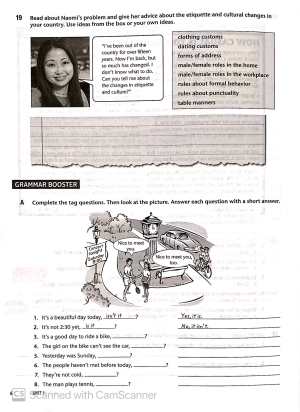 19 Read about Naomi's problem and give her advice about the etiquette and cultural changes in
your country. Use ideas from the box or your own ideas.
"I've been out of the
country for over fifteen
years. Now I'm back, but
so much has changed. I
don't know what to do.
Can you tell me about
the changes in etiquette
and culture?"
clothing customs
dating customs
forms of address
male/female roles in the home
male/female roles in the workplace
rules about formal behavior
rules about punctuality
table manners
GRAMMAR BOOSTER
A Complete the tag questions. Then look at the picture. Answer each question with a short answer.
Concert tonight
Nice to meet
you.
Nice to meet you,
too.
1. It's a beautiful day today, isn't it ? Yes, it is.
2. It's not 2:30 yet, is it ? No, it isn't.
3. It's a good day to ride a bike, ?
4. The girl on the bike can't see the car, ?
5. Yesterday was Sunday, ?
6. The people haven't met before today, ?
7. They're not cold, ?
8. The man plays tennis, ?
UNIT 1
CS Scanned with CamScanner